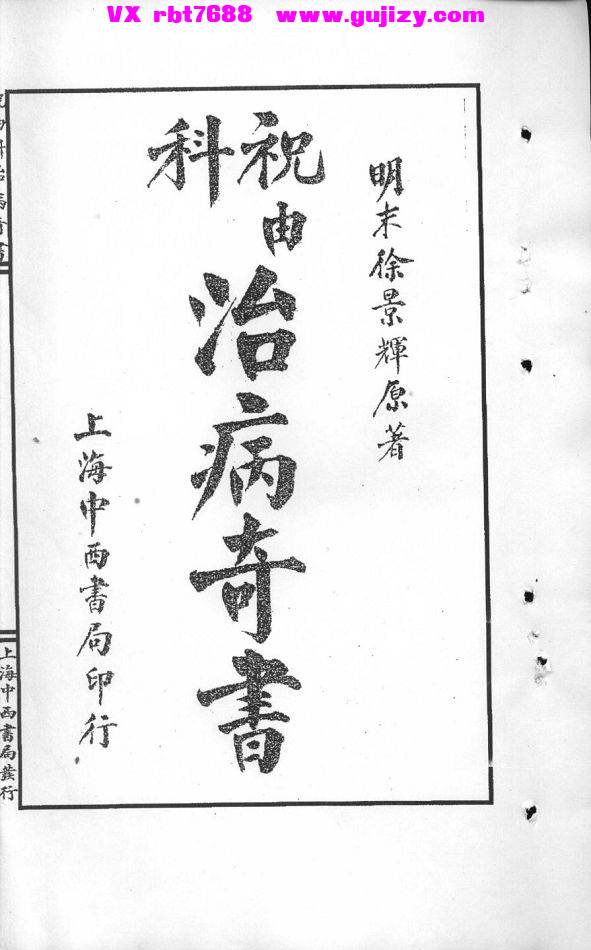 VX rbt7688 www.gujizy.com
明末徐景輝原著
祝由科
治病奇書
上海中西書局印行
上海中西書局發行